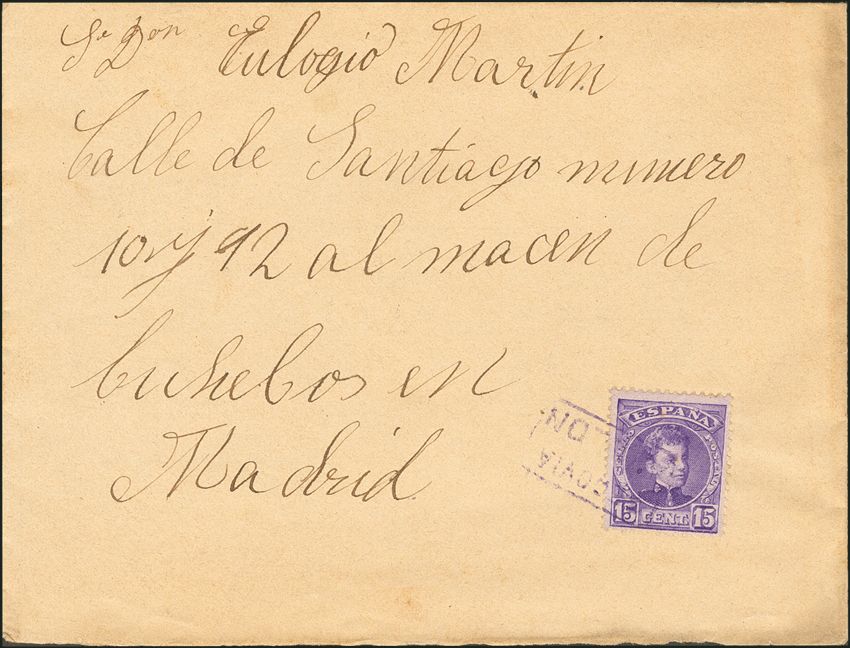 Sr Don Eulogio Martin
Calle de Santiago numero
10 y 92 al macen de
en
Madrid
ESPAÑA
15 CENT 15